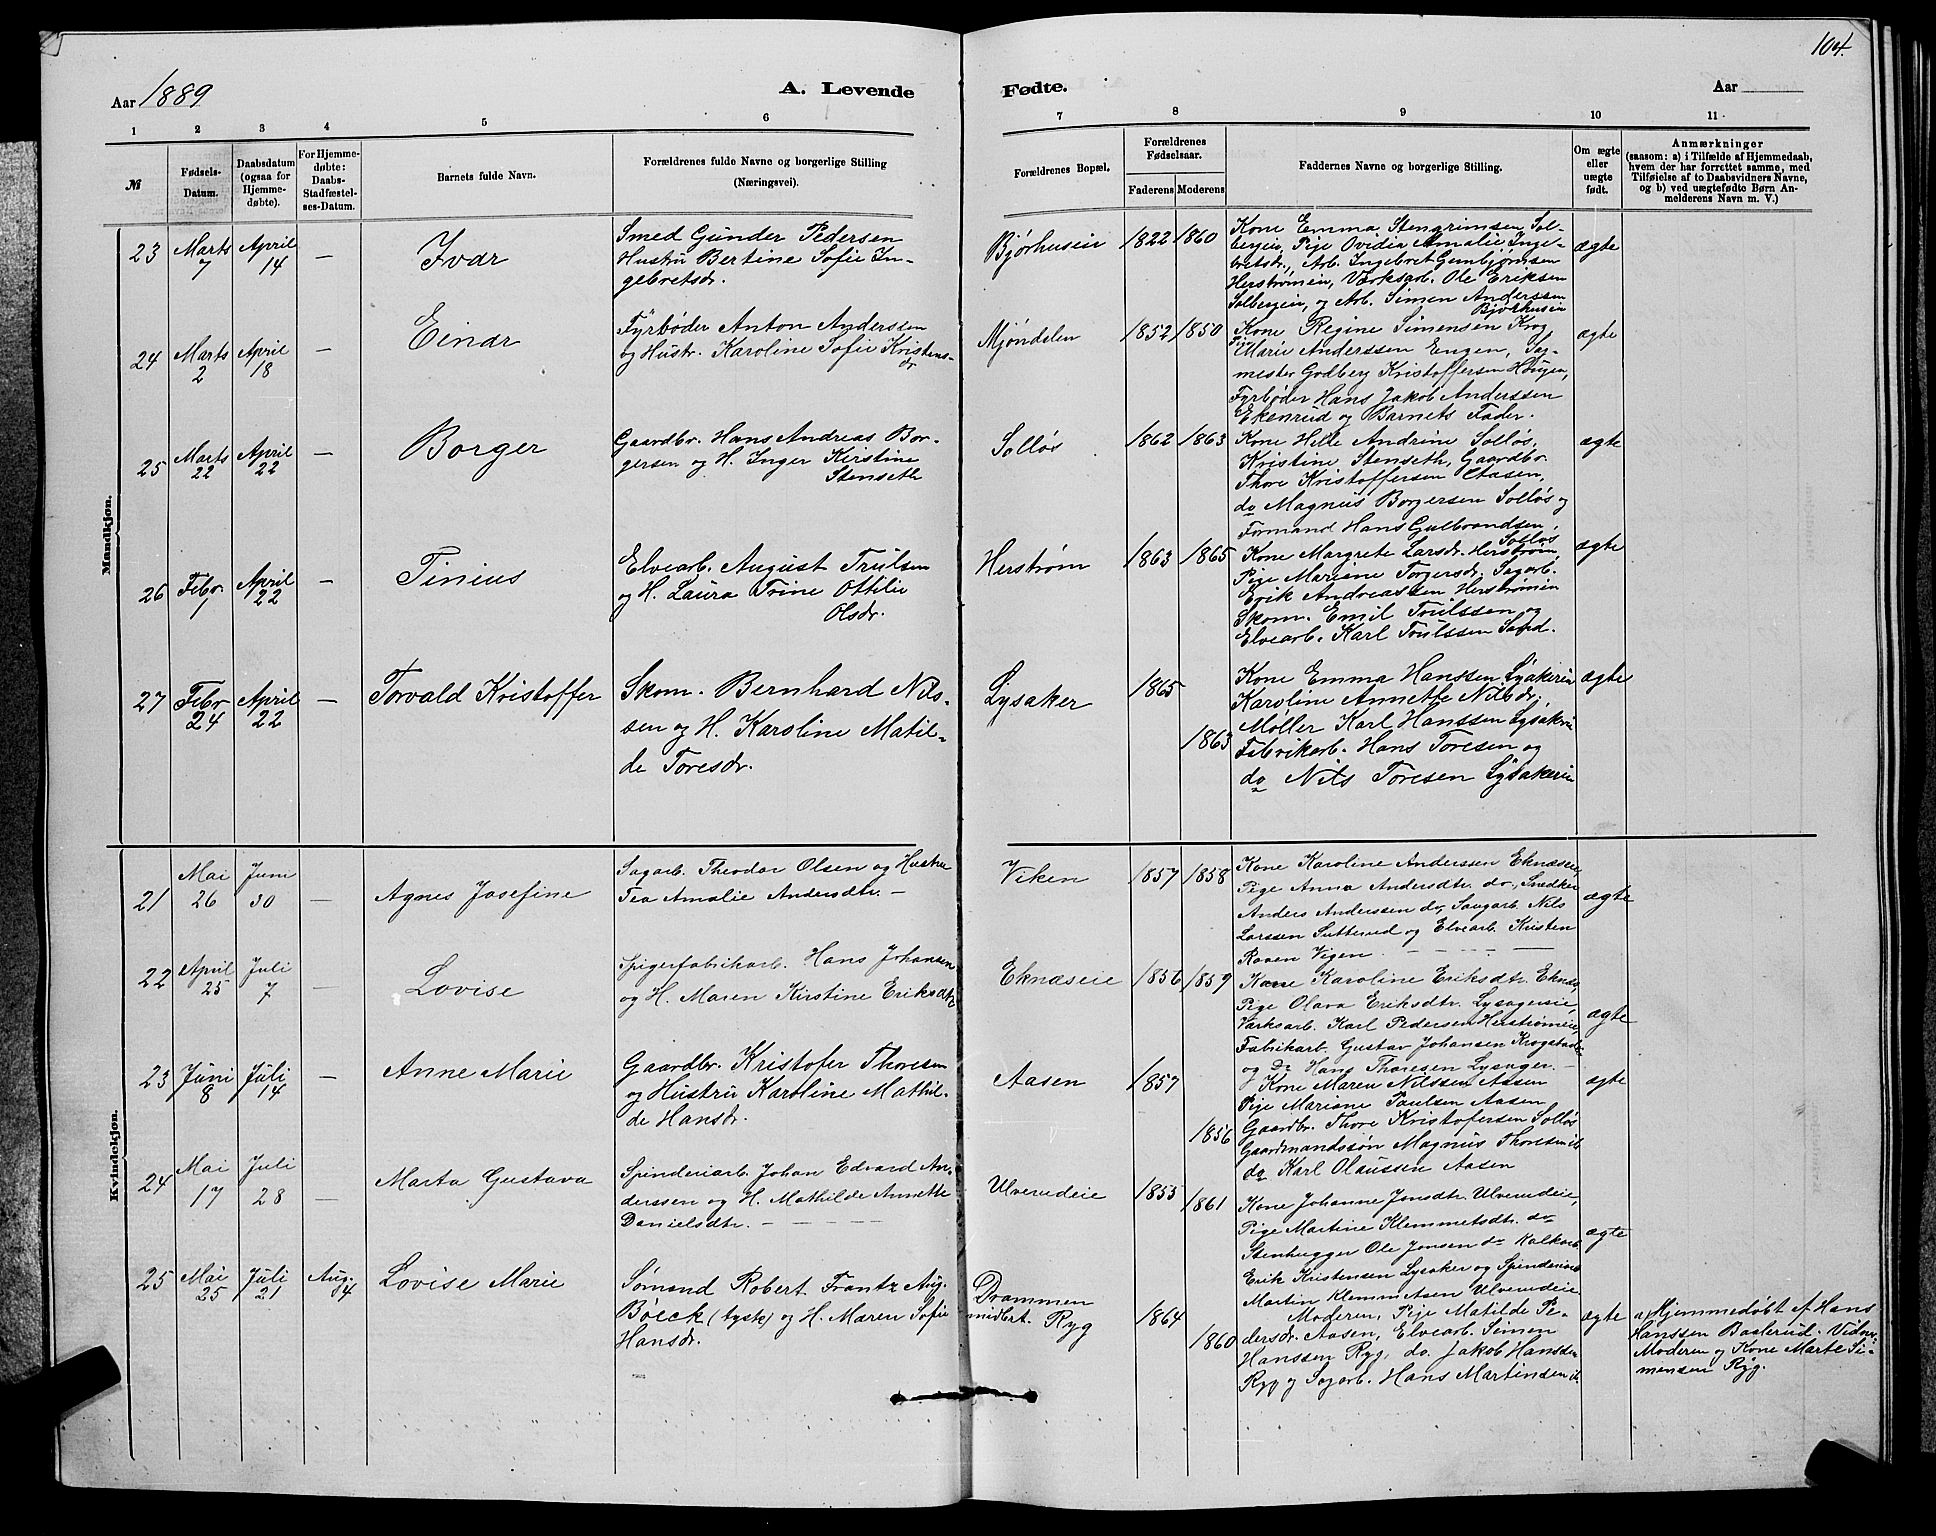 104.
Aar 1889
A. Levende
Fødte.
Aar
1 2 3 4 5 6 7 8 9 10 11
№
Fødsels-
Datum.
Daabsdatum
(ogsaa for
Hjemme-
døbte).
For Hjemme-
døbte:
Daabs-
Stadfæstel-
ses-Datum.
Barnets fulde Navn.
Forældrenes fulde Navne og borgerlige Stilling
(Næringsvei).
Forældrenes Bopæl.
Forældrenes
Fødselsaar.
Faderens
Moderens
Faddernes Navne og borgerlige Stilling.
Om ægte
eller
uægte
født.
Anmærkninger
(saasom: a) i Tilfælde af Hjemmedaab,
hvem der har forrettet samme, med
Tilføielse af to Daabsvidners Navne,
og b) ved uægtefødte Børn An-
melderens Navn m. V.)
Mandkjøn.
23
Marts
7
April
14
—
Ivar
Smed Gunder Pedersen
Hustru Bertine Sofie In-
gebretsdr.
Bjørhuseie
1822
1860
Kone Emma Stengrimsen Sol-
bergeie, Pige Ovidia Amalie Inge-
bretsdr., Arb. Ingebret Gunbjørnsen
Herstrømeie, Værksarb. Ole Eriksen
Solbergeie, og Arb. Simen Anderssen
Bjørhuseie
ægte
24
Marts
2
April
18
—
Einar
Fyrbøder Anton Anderssen
og Hustr. Karoline Sofie Kristens-
dr
Mjøndalen
1852
1850
Kone Regine Simensen Krog,
Pige Marie Anderssen Engen, Sag-
mester Godberg Kristoffersen Haugen,
Fyrbøder Hans Jakob Anderssen
Ekenrud og Barnets Fader.
ægte
25
Marts
22
April
22
—
Borger
Gaardbr. Hans Andreas Bor-
gersen og H. Inger Kirstine
Stenseth
Solløs
1862
1863
Kone Helle Andrine Solløs,
Kristine Stenseth, Gaardbr.
Thore Kristoffersen Aasen,
do Magnus Borgersen Solløs og
Formand Hans Gulbrandsen,
Solløs
ægte
26
Febr.
1
April
22
—
Tinius
Elvearb. August Trulsen
og H. Laura Trine Ottilie
Olsdr.
Herstrøm
1863
1865
Kone Margrete Larsdr. Herstrøm,
Pige Mariane Torgersdr, Sagarb.
Erik Andreassen Herstrømeie
Skom. Emil Trulssen og
Elvearb. Karl Trulssen Sand.
ægte
27
Febr
24
April
22
—
Torvald Kristoffer
Skom. Bernhard Nils-
sen og H. Karoline Matil-
de Toresdr.
Lysaker
1865
1863
Kone Emma Hanssen Lysakereie
Karoline Annette Nilsdr,
Møller Karl Hanssen Lysakreie
Fabrikarb. Hans Toresen og
do Nils Toresen Lysakereie
ægte
Kvindekjøn.
21
Mai
26
Juni
30
—
Agnes Josefine
Sagarb. Theodor Olsen og Hustru
Tea Amalie Andersdtr. —
Viken
1857
1858
Kone Karoline Anderssen Eknæseie,
Pige Anna Andersdtr. do, Snedker
Anders Anderssen do, Saugarb. Nils
Larssen Sutterud og Elvearb. Kristen
Raaen Vigen. — — — —
ægte
22
April
25
Juli
7
—
Lovise
Spigerfabrikarb. Hans Johansen
og H. Maren Kirstine Eriksdtr
Eknæseie
1856
1859
Kone Karoline Eriksdtr. Eknæs,
Pige Olava Eriksdtr. Lysagereie,
Værksarb. Karl Pedersen Herstrømeie,
Fabrikarb. Gustav Johansen Krogstad
og do Hans Thoresen Lysager. —
ægte
23
Juni
8
Juli
14
—
Anne Marie
Gaardbr. Kristofer Thoresen
og Hustru Karoline Mathil-
de Hansdr.
Aasen
1857
1856
Kone Maren Nilssen Aasen
Pige Mariane Paulsen Aasen
Gaardbr. Thore Kristofersen Solløs
Gaardmandssøn Magnus Thoresen ib
do Karl Olaussen Aasen
ægte
24
Mai
17
Juli
28
—
Marta Gustava
Spinderiarb. Johan Edvard An-
derssen og H. Mathilde Annette
Danielsdtr. — — — — —
Ulverudeie
1855
1861
Kone Johanne Jonsdtr. Ulverudeie,
Pige Martine Klemmetsdtr. do
Stenhugger Ole Jonsen do Kalkarb.
Erik Kristensen Lysaker og Spinderiarb
Martin Klemmetsen Ulverudeie
ægte
25
Mai
25
Juli
21
Aug.
4
Lovise Marie
Sømand Robert Frantz Aug.
Böeck (tysk) og H. Maren Sofie
Hansdr.
Drammen
midlert. Ryg
1864
1860
Moderen, Pige Matilde Pe-
dersdr. Aasen, Elvearb. Simen
Hanssen Ryg, do. Jakob Hanssen
Ryg og Sagarb. Hans Martinsen ib.
ægte
a, Hjemmedøbt af Hans
Hanssen Baslerud. Vidner
Moderen og Kone Marte Si-
mensen Ryg.